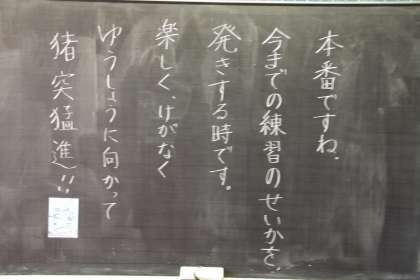 本番ですね。
今までの練習のせいかを、
発きする時です。
楽しく、けがなく
ゆうしょうに向かって
猪突猛進!!